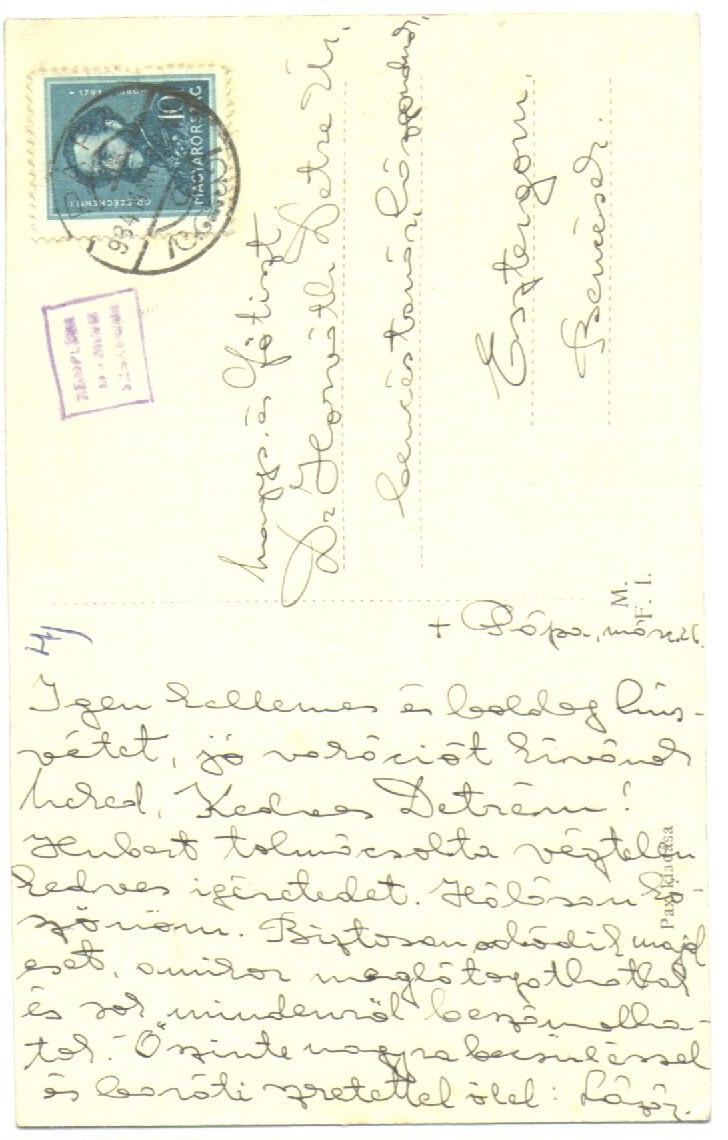 + 1791 - 1860 +
10
MAGYARORSZÁG
GR. SZÉCHENYI I.
PÁPA
934
nagys. és főtiszt
Dr Horváth Detre Úr,
bencéstanár,
Esztergom.
Bencések.
M.
F. I.
Pax kiadása
4)
+ Pápa, márc. 26.
Igen kellemes és boldog hús-
vétet, jó vakációt kívánok
Neked, Kedves Detrém!
Hubert tolmácsolta végtelen
kedves igéretedet. Hálásan kö-
szönöm. Biztosan adódik majd
eset, amikor meglátogathatlak
és sok mindenről beszámolha-
tok. Őszinte nagyrabecsüléssel
és baráti szeretettel ölel: Lázár.